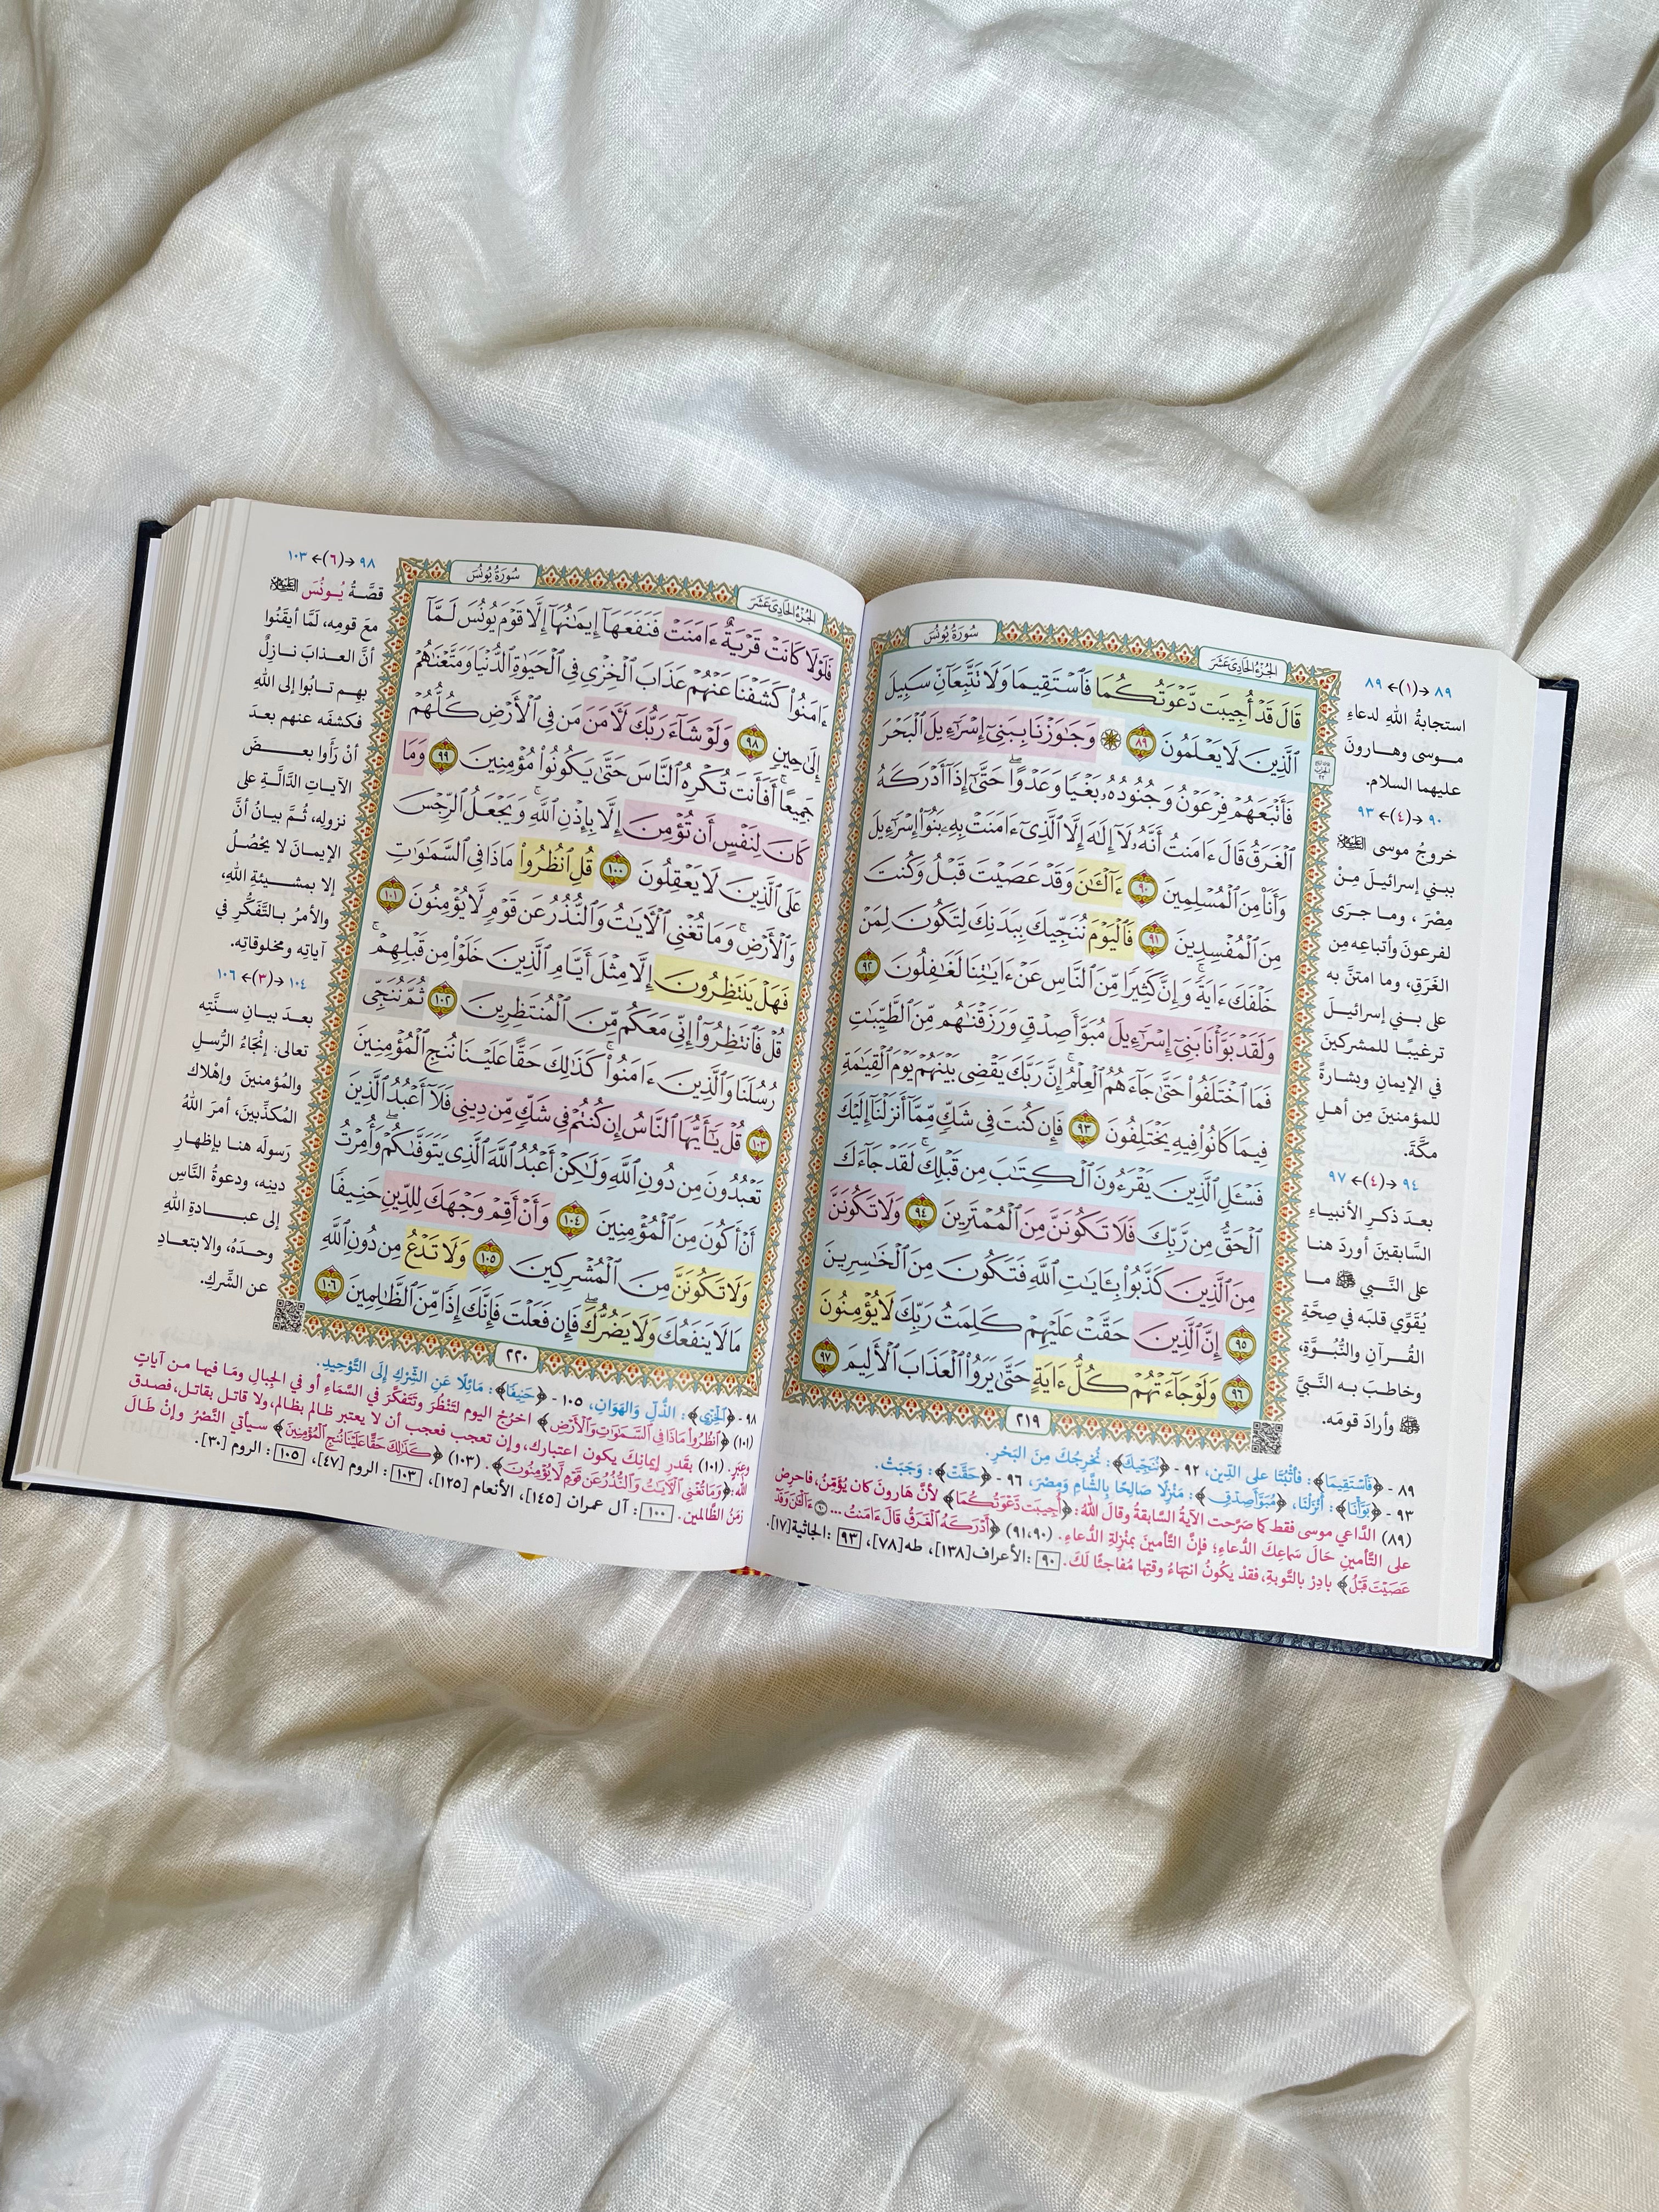 سُورَةُ يُونُسَ
الجُزْءُ الحَادِي عَشَرَ
قَالَ قَدۡ أُجِيبَت دَّعۡوَتُكُمَا فَٱسۡتَقِيمَا وَلَا تَتَّبِعَآنِّ سَبِيلَ
ٱلَّذِينَ لَا يَعۡلَمُونَ ٨٩ ۞ وَجَٰوَزۡنَا بِبَنِيٓ إِسۡرَٰٓءِيلَ ٱلۡبَحۡرَ
فَأَتۡبَعَهُمۡ فِرۡعَوۡنُ وَجُنُودُهُۥ بَغۡيٗا وَعَدۡوًاۖ حَتَّىٰٓ إِذَآ أَدۡرَكَهُ
ٱلۡغَرَقُ قَالَ ءَامَنتُ أَنَّهُۥ لَآ إِلَٰهَ إِلَّا ٱلَّذِيٓ ءَامَنَتۡ بِهِۦ بَنُوٓاْ إِسۡرَٰٓءِيلَ
وَأَنَا۠ مِنَ ٱلۡمُسۡلِمِينَ ٩٠ ءَآلۡـَٰٔنَ وَقَدۡ عَصَيۡتَ قَبۡلُ وَكُنتَ
مِنَ ٱلۡمُفۡسِدِينَ ٩١ فَٱلۡيَوۡمَ نُنَجِّيكَ بِبَدَنِكَ لِتَكُونَ لِمَنۡ
خَلۡفَكَ ءَايَةٗۚ وَإِنَّ كَثِيرٗا مِّنَ ٱلنَّاسِ عَنۡ ءَايَٰتِنَا لَغَٰفِلُونَ ٩٢
وَلَقَدۡ بَوَّأۡنَا بَنِيٓ إِسۡرَٰٓءِيلَ مُبَوَّأَ صِدۡقٖ وَرَزَقۡنَٰهُم مِّنَ ٱلطَّيِّبَٰتِ
فَمَا ٱخۡتَلَفُواْ حَتَّىٰ جَآءَهُمُ ٱلۡعِلۡمُۚ إِنَّ رَبَّكَ يَقۡضِي بَيۡنَهُمۡ يَوۡمَ ٱلۡقِيَٰمَةِ
فِيمَا كَانُواْ فِيهِ يَخۡتَلِفُونَ ٩٣ فَإِن كُنتَ فِي شَكّٖ مِّمَّآ أَنزَلۡنَآ إِلَيۡكَ
فَسۡـَٔلِ ٱلَّذِينَ يَقۡرَءُونَ ٱلۡكِتَٰبَ مِن قَبۡلِكَۚ لَقَدۡ جَآءَكَ
ٱلۡحَقُّ مِن رَّبِّكَ فَلَا تَكُونَنَّ مِنَ ٱلۡمُمۡتَرِينَ ٩٤ وَلَا تَكُونَنَّ
مِنَ ٱلَّذِينَ كَذَّبُواْ بِـَٔايَٰتِ ٱللَّهِ فَتَكُونَ مِنَ ٱلۡخَٰسِرِينَ
٩٥ إِنَّ ٱلَّذِينَ حَقَّتۡ عَلَيۡهِمۡ كَلِمَتُ رَبِّكَ لَا يُؤۡمِنُونَ
٩٦ وَلَوۡ جَآءَتۡهُمۡ كُلُّ ءَايَةٍ حَتَّىٰ يَرَوُاْ ٱلۡعَذَابَ ٱلۡأَلِيمَ ٩٧
٢١٩
٨٩ ←(١)→ ٨٩
استجابةُ اللهِ لدعاءِ
موسى وهارونَ
عليهما السلام.
٩٠ ←(٤)→ ٩٣
خروجُ موسى
ببني إسرائيلَ مِنْ
مِصْرَ، وما جرَى
لفرعونَ وأتباعِه مِن
الغَرَقِ، وما امتنَّ به
على بني إسرائيلَ
ترغيبًا للمشركينَ
في الإيمانِ وبشارةً
للمؤمنينَ مِن أهلِ
مكَّةَ.
٩٤ ←(٤)→ ٩٧
بعدَ ذكرِ الأنبياءِ
السَّابقينَ أوردَ هنا
على النَّبي ﷺ ما
يُقَوِّي قلبَه في صِحَّةِ
القُرآنِ والنُّبُوَّةِ،
وخاطبَ به النَّبيَّ
ﷺ وأرادَ قومَه.
٨٩ - ﴿فَٱسۡتَقِيمَا﴾: فَاثْبُتَا على الدِّينِ، ٩٢ - ﴿نُنَجِّيكَ﴾: نُخرِجُكَ مِنَ البَحْرِ.
٩٣ - ﴿بَوَّأۡنَا﴾: أَنْزَلْنَا، ﴿مُبَوَّأَ صِدۡقٖ﴾: مَنْزِلًا صَالِحًا بِالشَّامِ وَمِصْرَ، ٩٦ - ﴿حَقَّتۡ﴾: وَجَبَتْ.
(٨٩) الدَّاعي موسى فقط كما صَرَّحت الآيةُ السابقةُ وقالَ اللهُ: ﴿أُجِيبَت دَّعۡوَتُكُمَا﴾ لأنَّ هَارونَ كان يُؤَمِّنُ، فاحرِصْ
على التَّأمينِ حَالَ سَماعِكَ الدُّعاءِ؛ فإنَّ التَّأمينَ بمنْزِلةِ الدُّعاءِ. (٩١،٩٠) ﴿أَدۡرَكَهُ ٱلۡغَرَقُ قَالَ ءَامَنتُ ... ٩٠ ءَآلۡـَٰٔنَ وَقَدۡ
عَصَيۡتَ قَبۡلُ﴾ بادِرْ بالتَّوبةِ، فقدْ يكُونُ انتهاءُ وقتِها مُفاجئًا لَكَ. ٩٠: الأعراف[١٣٨]، طه[٧٨]، ٩٣: الجاثية[١٧].
سُورَةُ يُونُسَ
الجُزْءُ الحَادِي عَشَرَ
فَلَوۡلَا كَانَتۡ قَرۡيَةٌ ءَامَنَتۡ فَنَفَعَهَآ إِيمَٰنُهَآ إِلَّا قَوۡمَ يُونُسَ لَمَّآ
ءَامَنُواْ كَشَفۡنَا عَنۡهُمۡ عَذَابَ ٱلۡخِزۡيِ فِي ٱلۡحَيَوٰةِ ٱلدُّنۡيَا وَمَتَّعۡنَٰهُمۡ
إِلَىٰ حِينٖ ٩٨ وَلَوۡ شَآءَ رَبُّكَ لَأٓمَنَ مَن فِي ٱلۡأَرۡضِ كُلُّهُمۡ
جَمِيعًاۚ أَفَأَنتَ تُكۡرِهُ ٱلنَّاسَ حَتَّىٰ يَكُونُواْ مُؤۡمِنِينَ ٩٩ وَمَا
كَانَ لِنَفۡسٍ أَن تُؤۡمِنَ إِلَّا بِإِذۡنِ ٱللَّهِۚ وَيَجۡعَلُ ٱلرِّجۡسَ
عَلَى ٱلَّذِينَ لَا يَعۡقِلُونَ ١٠٠ قُلِ ٱنظُرُواْ مَاذَا فِي ٱلسَّمَٰوَٰتِ
وَٱلۡأَرۡضِۚ وَمَا تُغۡنِي ٱلۡأٓيَٰتُ وَٱلنُّذُرُ عَن قَوۡمٖ لَّا يُؤۡمِنُونَ ١٠١
فَهَلۡ يَنتَظِرُونَ إِلَّا مِثۡلَ أَيَّامِ ٱلَّذِينَ خَلَوۡاْ مِن قَبۡلِهِمۡۚ
قُلۡ فَٱنتَظِرُوٓاْ إِنِّي مَعَكُم مِّنَ ٱلۡمُنتَظِرِينَ ١٠٢ ثُمَّ نُنَجِّي
رُسُلَنَا وَٱلَّذِينَ ءَامَنُواْۚ كَذَٰلِكَ حَقًّا عَلَيۡنَا نُنجِ ٱلۡمُؤۡمِنِينَ
١٠٣ قُلۡ يَٰٓأَيُّهَا ٱلنَّاسُ إِن كُنتُمۡ فِي شَكّٖ مِّن دِينِي فَلَآ أَعۡبُدُ ٱلَّذِينَ
تَعۡبُدُونَ مِن دُونِ ٱللَّهِ وَلَٰكِنۡ أَعۡبُدُ ٱللَّهَ ٱلَّذِي يَتَوَفَّىٰكُمۡۖ وَأُمِرۡتُ
أَنۡ أَكُونَ مِنَ ٱلۡمُؤۡمِنِينَ ١٠٤ وَأَنۡ أَقِمۡ وَجۡهَكَ لِلدِّينِ حَنِيفٗا
وَلَا تَكُونَنَّ مِنَ ٱلۡمُشۡرِكِينَ ١٠٥ وَلَا تَدۡعُ مِن دُونِ ٱللَّهِ
مَا لَا يَنفَعُكَ وَلَا يَضُرُّكَۖ فَإِن فَعَلۡتَ فَإِنَّكَ إِذٗا مِّنَ ٱلظَّٰلِمِينَ ١٠٦
٢٢٠
٩٨ ←(٦)→ ١٠٣
قصَّةُ يُونُسَ
معَ قومِه، لَمَّا أيقَنُوا
أنَّ العذابَ نازِلٌ
بهِم تابُوا إلى اللهِ
فكشفَه عنهم بعدَ
أنْ رَأَوا بعضَ
الآياتِ الدَّالَّةِ على
نزولِه، ثُمَّ بيانُ أنَّ
الإيمانَ لا يَحْصُلُ
إلا بمشيئةِ اللهِ،
والأمرُ بالتَّفَكُّرِ في
آياتِه ومخلوقاتِه.
١٠٤ ←(٣)→ ١٠٦
بعدَ بيانِ سنَّتِه
تعالى: إنْجَاءُ الرُّسلِ
والمُؤمنينَ وإهْلاك
المُكذِّبينَ، أمرَ اللهُ
رَسولَه هنا بإظهارِ
دينِه، ودعوةُ النَّاسِ
إلى عبادةِ اللهِ
وحدَهُ، والابتعادِ
عن الشِّركِ.
٩٨ - ﴿ٱلۡخِزۡيِ﴾: الذُّلِّ وَالهَوَانِ، ١٠٥ - ﴿حَنِيفٗا﴾: مَائِلًا عَنِ الشِّرْكِ إِلَى التَّوْحِيدِ.
(١٠١) ﴿ٱنظُرُواْ مَاذَا فِي ٱلسَّمَٰوَٰتِ وَٱلۡأَرۡضِ﴾ اخرُج اليوم لتَنْظُرَ وتَتَفكَّرَ في السَّمَاءِ أو في الجِبالِ ومَا فيها من آياتٍ
وعِبَرٍ. (١٠١) بقَدرِ إيمانِكَ يكون اعتبارك، وإن تعجب فعجب أن لا يعتبر ظالم بظالم، ولا قاتل بقاتل، فصدق
الله: ﴿وَمَا تُغۡنِي ٱلۡأٓيَٰتُ وَٱلنُّذُرُ عَن قَوۡمٖ لَّا يُؤۡمِنُونَ﴾. (١٠٣) ﴿كَذَٰلِكَ حَقًّا عَلَيۡنَا نُنجِ ٱلۡمُؤۡمِنِينَ﴾ سيأتي النَّصْرُ وإنْ طَالَ
زمَنُ الظَّالمين. ١٠٠: آل عمران [١٤٥]، الأنعام [١٢٥]، ١٠٣: الروم [٤٧]، ١٠٥: الروم [٣٠].